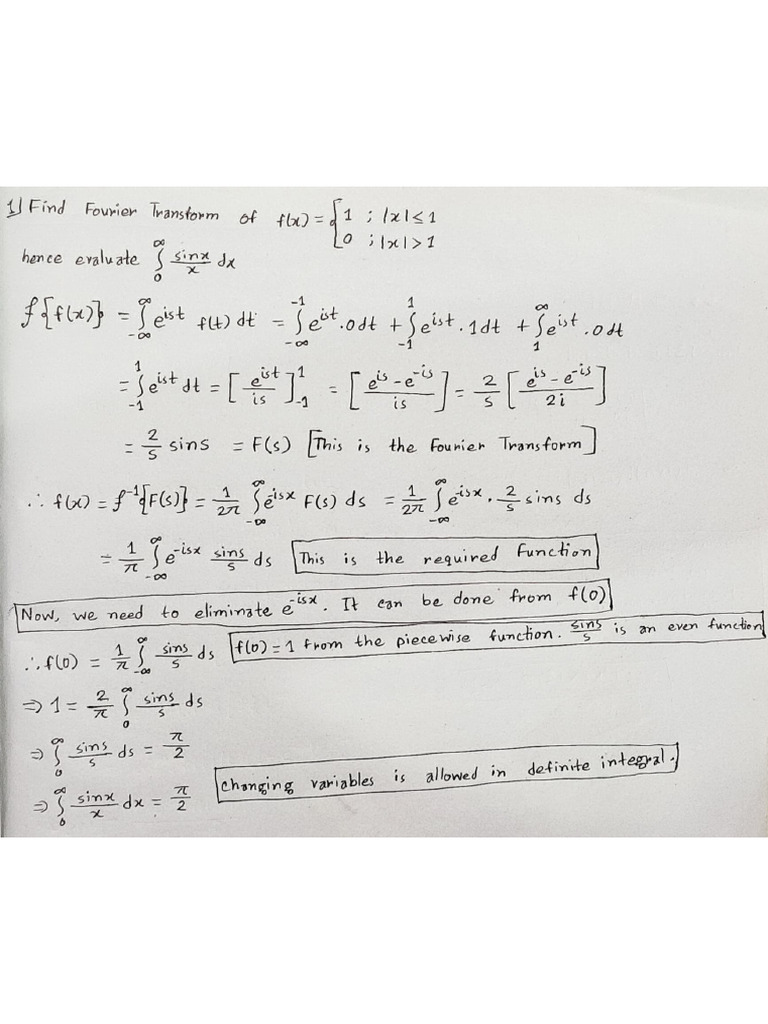 1) Find Fourier Transform of f(x) = { 1 ; |x| ≤ 1
0 ; |x| > 1
hence evaluate ∫₀^∞ sinx/x dx
f{f(x)} = ∫_{-∞}^{∞} e^{ist} f(t) dt = ∫_{-∞}^{-1} e^{ist}.0dt + ∫_{-1}^{1} e^{ist}.1dt + ∫_{1}^{∞} e^{ist}.0dt
= ∫_{-1}^{1} e^{ist} dt = [e^{ist}/is]_{-1}^{1} = [(e^{is} - e^{-is})/is] = 2/s [(e^{is} - e^{-is})/2i]
= 2/s sins = F(s) [This is the Fourier Transform]
∴ f(x) = f^{-1}{F(s)} = 1/2π ∫_{-∞}^{∞} e^{-isx} F(s) ds = 1/2π ∫_{-∞}^{∞} e^{-isx}. 2/s sins ds
= 1/π ∫_{-∞}^{∞} e^{-isx} sins/s ds This is the required Function
Now, we need to eliminate e^{-isx}. It can be done from f(0)
∴ f(0) = 1/π ∫_{-∞}^{∞} sins/s ds f(0) = 1 from the piecewise function. sins/s is an even function
⇒ 1 = 2/π ∫₀^∞ sins/s ds
⇒ ∫₀^∞ sins/s ds = π/2
⇒ ∫₀^∞ sinx/x dx = π/2 Changing variables is allowed in definite integral.